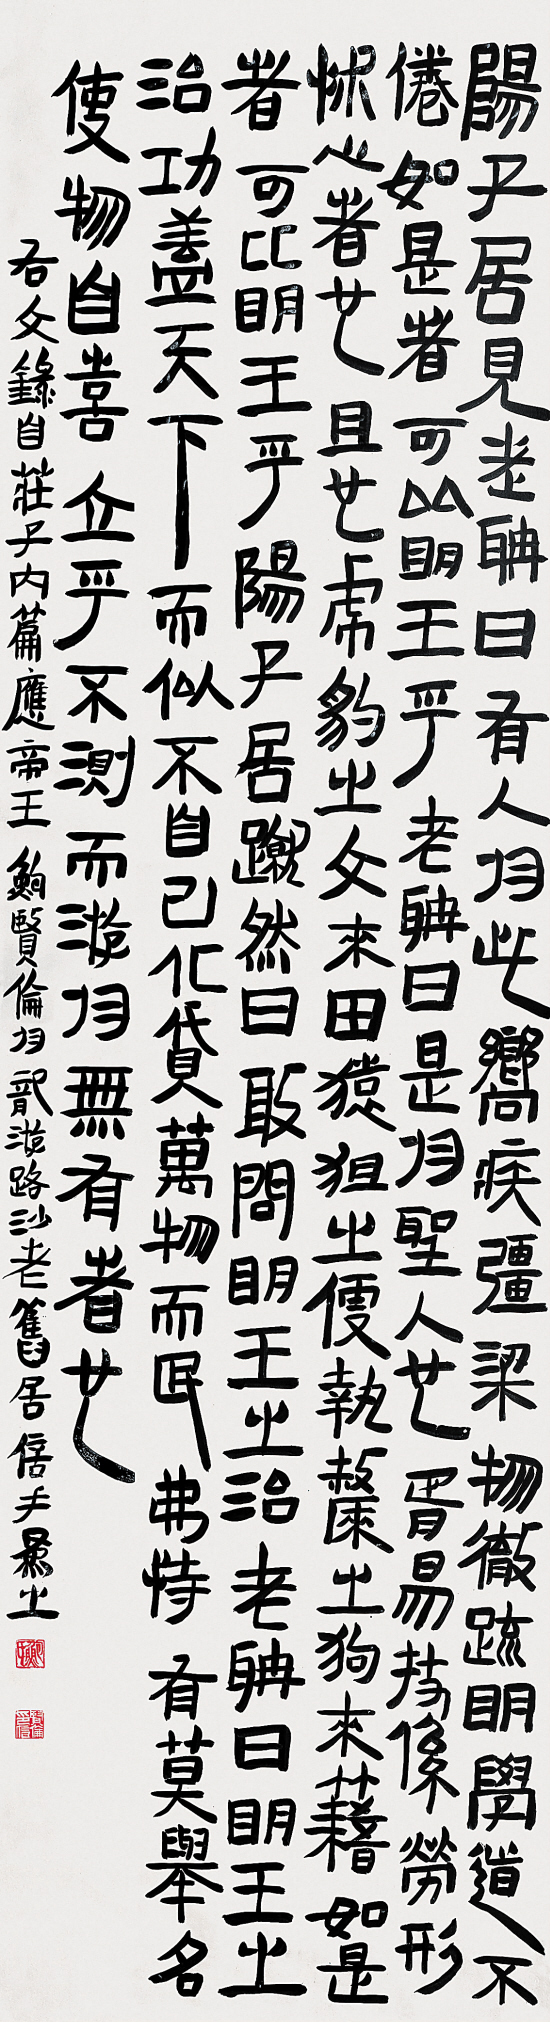 陽子居見老聃曰有人於此嚮疾彊梁物徹疏明學道不
倦如是者可比明王乎老聃曰是於聖人也胥易技係勞形
怵心者也且也虎豹之文來田猨狙之便執斄之狗來藉如是
者可比明王乎陽子居蹴然曰敢問明王之治老聃曰明王之
治功蓋天下而似不自己化貸萬物而民弗恃有莫舉名
使物自喜立乎不測而遊於無有者也
右文錄自莊子內篇應帝王鮑賢倫於龍游路沙老舊居信手爲之